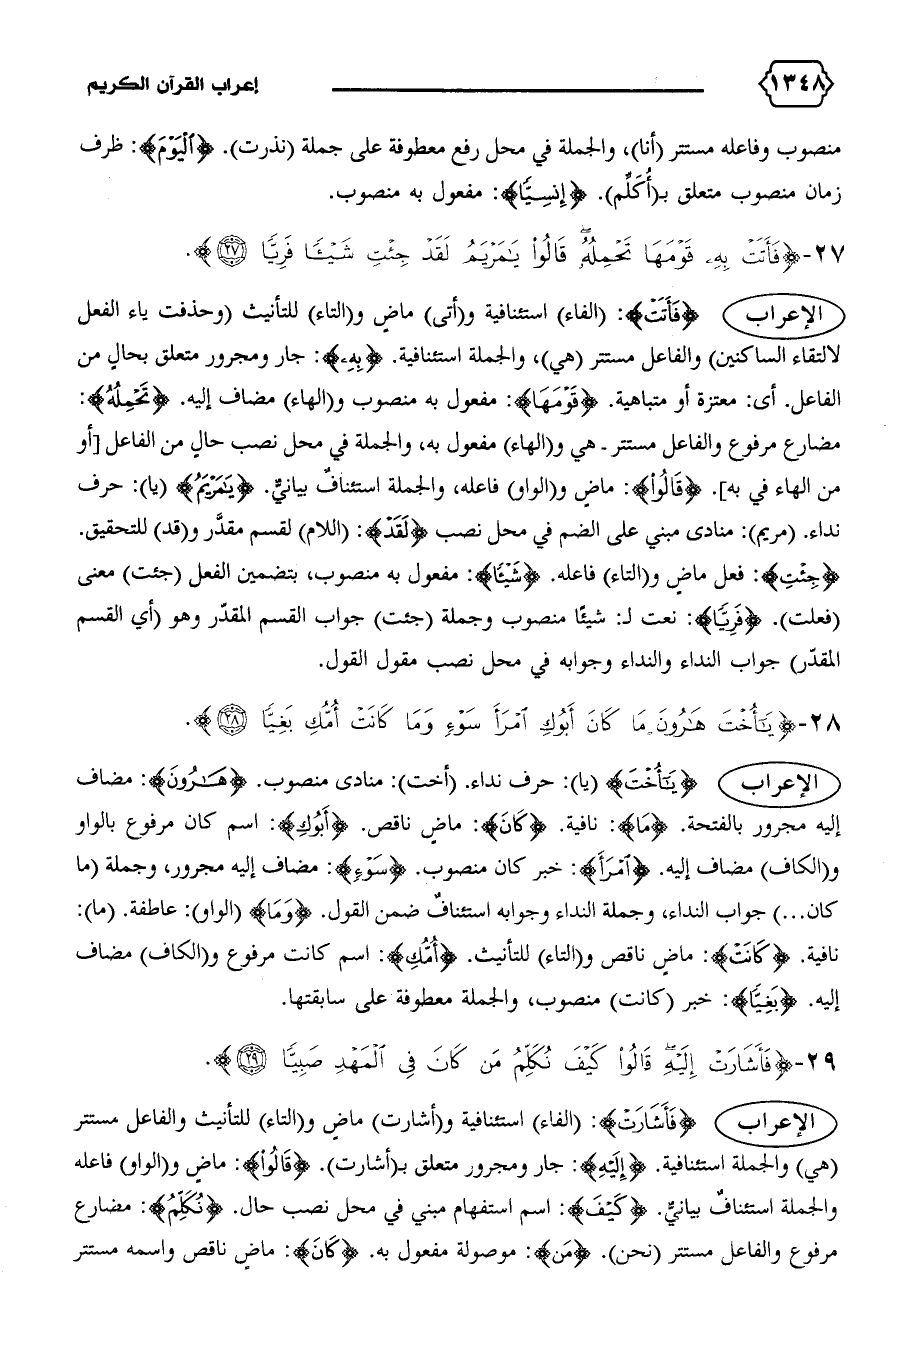 ١٣٤٨ إعراب القرآن الكريم
منصوب وفاعله مستتر (أنا)، والجملة في محل رفع معطوفة على جملة (نذرت). ﴿ٱلْيَوْمَ﴾: ظرف
زمان منصوب متعلق بـ(أُكَلِّم). ﴿إِنسِيًّا﴾: مفعول به منصوب.
٢٧-﴿فَأَتَتْ بِهِۦ قَوْمَهَا تَحْمِلُهُۥۖ قَالُوا۟ يَٰمَرْيَمُ لَقَدْ جِئْتِ شَيْـًٔا فَرِيًّا ٢٧﴾.
الإعراب ﴿فَأَتَتْ﴾: (الفاء) استئنافية و(أتى) ماضٍ و(التاء) للتأنيث (وحذفت ياء الفعل
لالتقاء الساكنين) والفاعل مستتر (هي)، والجملة استئنافية. ﴿بِهِۦ﴾: جار ومجرور متعلق بحال من
الفاعل. أى: معتزة أو متباهية. ﴿قَوْمَهَا﴾: مفعول به منصوب و(الهاء) مضاف إليه. ﴿تَحْمِلُهُ﴾:
مضارع مرفوع والفاعل مستتر ـ هي و(الهاء) مفعول به، والجملة في محل نصب حال من الفاعل [أو
من الهاء في به]. ﴿قَالُوا۟﴾: ماضٍ و(الواو) فاعله، والجملة استئنافٌ بيانيٌّ. ﴿يَٰمَرْيَمُ﴾ (يا): حرف
نداء. (مريم): منادى مبني على الضم في محل نصب ﴿لَقَدْ﴾: (اللام) لقسم مقدَّر و(قد) للتحقيق.
﴿جِئْتِ﴾: فعل ماضٍ و(التاء) فاعله. ﴿شَيْـًٔا﴾: مفعول به منصوب، بتضمين الفعل (جئت) معنى
(فعلت). ﴿فَرِيًّا﴾: نعت لـ: شيئًا منصوب وجملة (جئت) جواب القسم المقدّر وهو (أي القسم
المقدّر) جواب النداء والنداء وجوابه في محل نصب مقول القول.
٢٨-﴿يَٰٓأُخْتَ هَٰرُونَ مَا كَانَ أَبُوكِ ٱمْرَأَ سَوْءٍ وَمَا كَانَتْ أُمُّكِ بَغِيًّا ٢٨﴾.
الإعراب ﴿يَٰٓأُخْتَ﴾ (يا): حرف نداء. (أخت): منادى منصوب. ﴿هَٰرُونَ﴾: مضاف
إليه مجرور بالفتحة. ﴿مَا﴾: نافية. ﴿كَانَ﴾: ماضٍ ناقص. ﴿أَبُوكِ﴾: اسم كان مرفوع بالواو
و(الكاف) مضاف إليه. ﴿ٱمْرَأَ﴾: خبر كان منصوب. ﴿سَوْءٍ﴾: مضاف إليه مجرور، وجملة (ما
كان...) جواب النداء، وجملة النداء وجوابه استئنافٌ ضمن القول. ﴿وَمَا﴾ (الواو): عاطفة. (ما):
نافية. ﴿كَانَتْ﴾: ماضٍ ناقص و(التاء) للتأنيث. ﴿أُمُّكِ﴾: اسم كانت مرفوع و(الكاف) مضاف
إليه. ﴿بَغِيًّا﴾: خبر (كانت) منصوب، والجملة معطوفة على سابقتها.
٢٩-﴿فَأَشَارَتْ إِلَيْهِۖ قَالُوا۟ كَيْفَ نُكَلِّمُ مَن كَانَ فِى ٱلْمَهْدِ صَبِيًّا ٢٩﴾.
الإعراب ﴿فَأَشَارَتْ﴾: (الفاء) استئنافية و(أشارت) ماضٍ و(التاء) للتأنيث والفاعل مستتر
(هي) والجملة استئنافية. ﴿إِلَيْهِ﴾: جار ومجرور متعلق بـ(أشارت). ﴿قَالُوا۟﴾: ماضٍ و(الواو) فاعله
والجملة استئنافٌ بيانيٌّ. ﴿كَيْفَ﴾: اسم استفهام مبني في محل نصب حال. ﴿نُكَلِّمُ﴾: مضارع
مرفوع والفاعل مستتر (نحن). ﴿مَن﴾: موصولة مفعول به. ﴿كَانَ﴾: ماضٍ ناقص واسمه مستتر